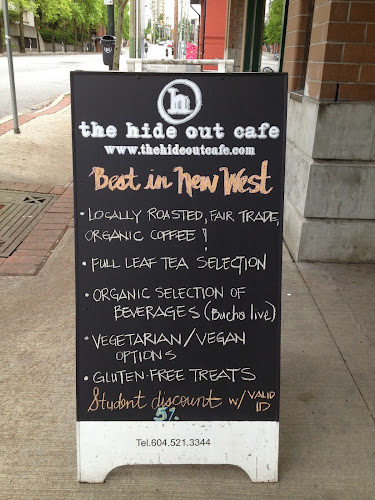 the hide out cafe
www.thehideoutcafe.com
Best in New West
• LOCALLY ROASTED, FAIR TRADE,
ORGANIC COFFEE!
• FULL LEAF TEA SELECTION
• ORGANIC SELECTION OF
BEVERAGES (Bucha live)
• VEGETARIAN/VEGAN
OPTIONS
• GLUTEN-FREE TREATS
Student discount w/ VALID ID
5%
Tel.604.521.3344